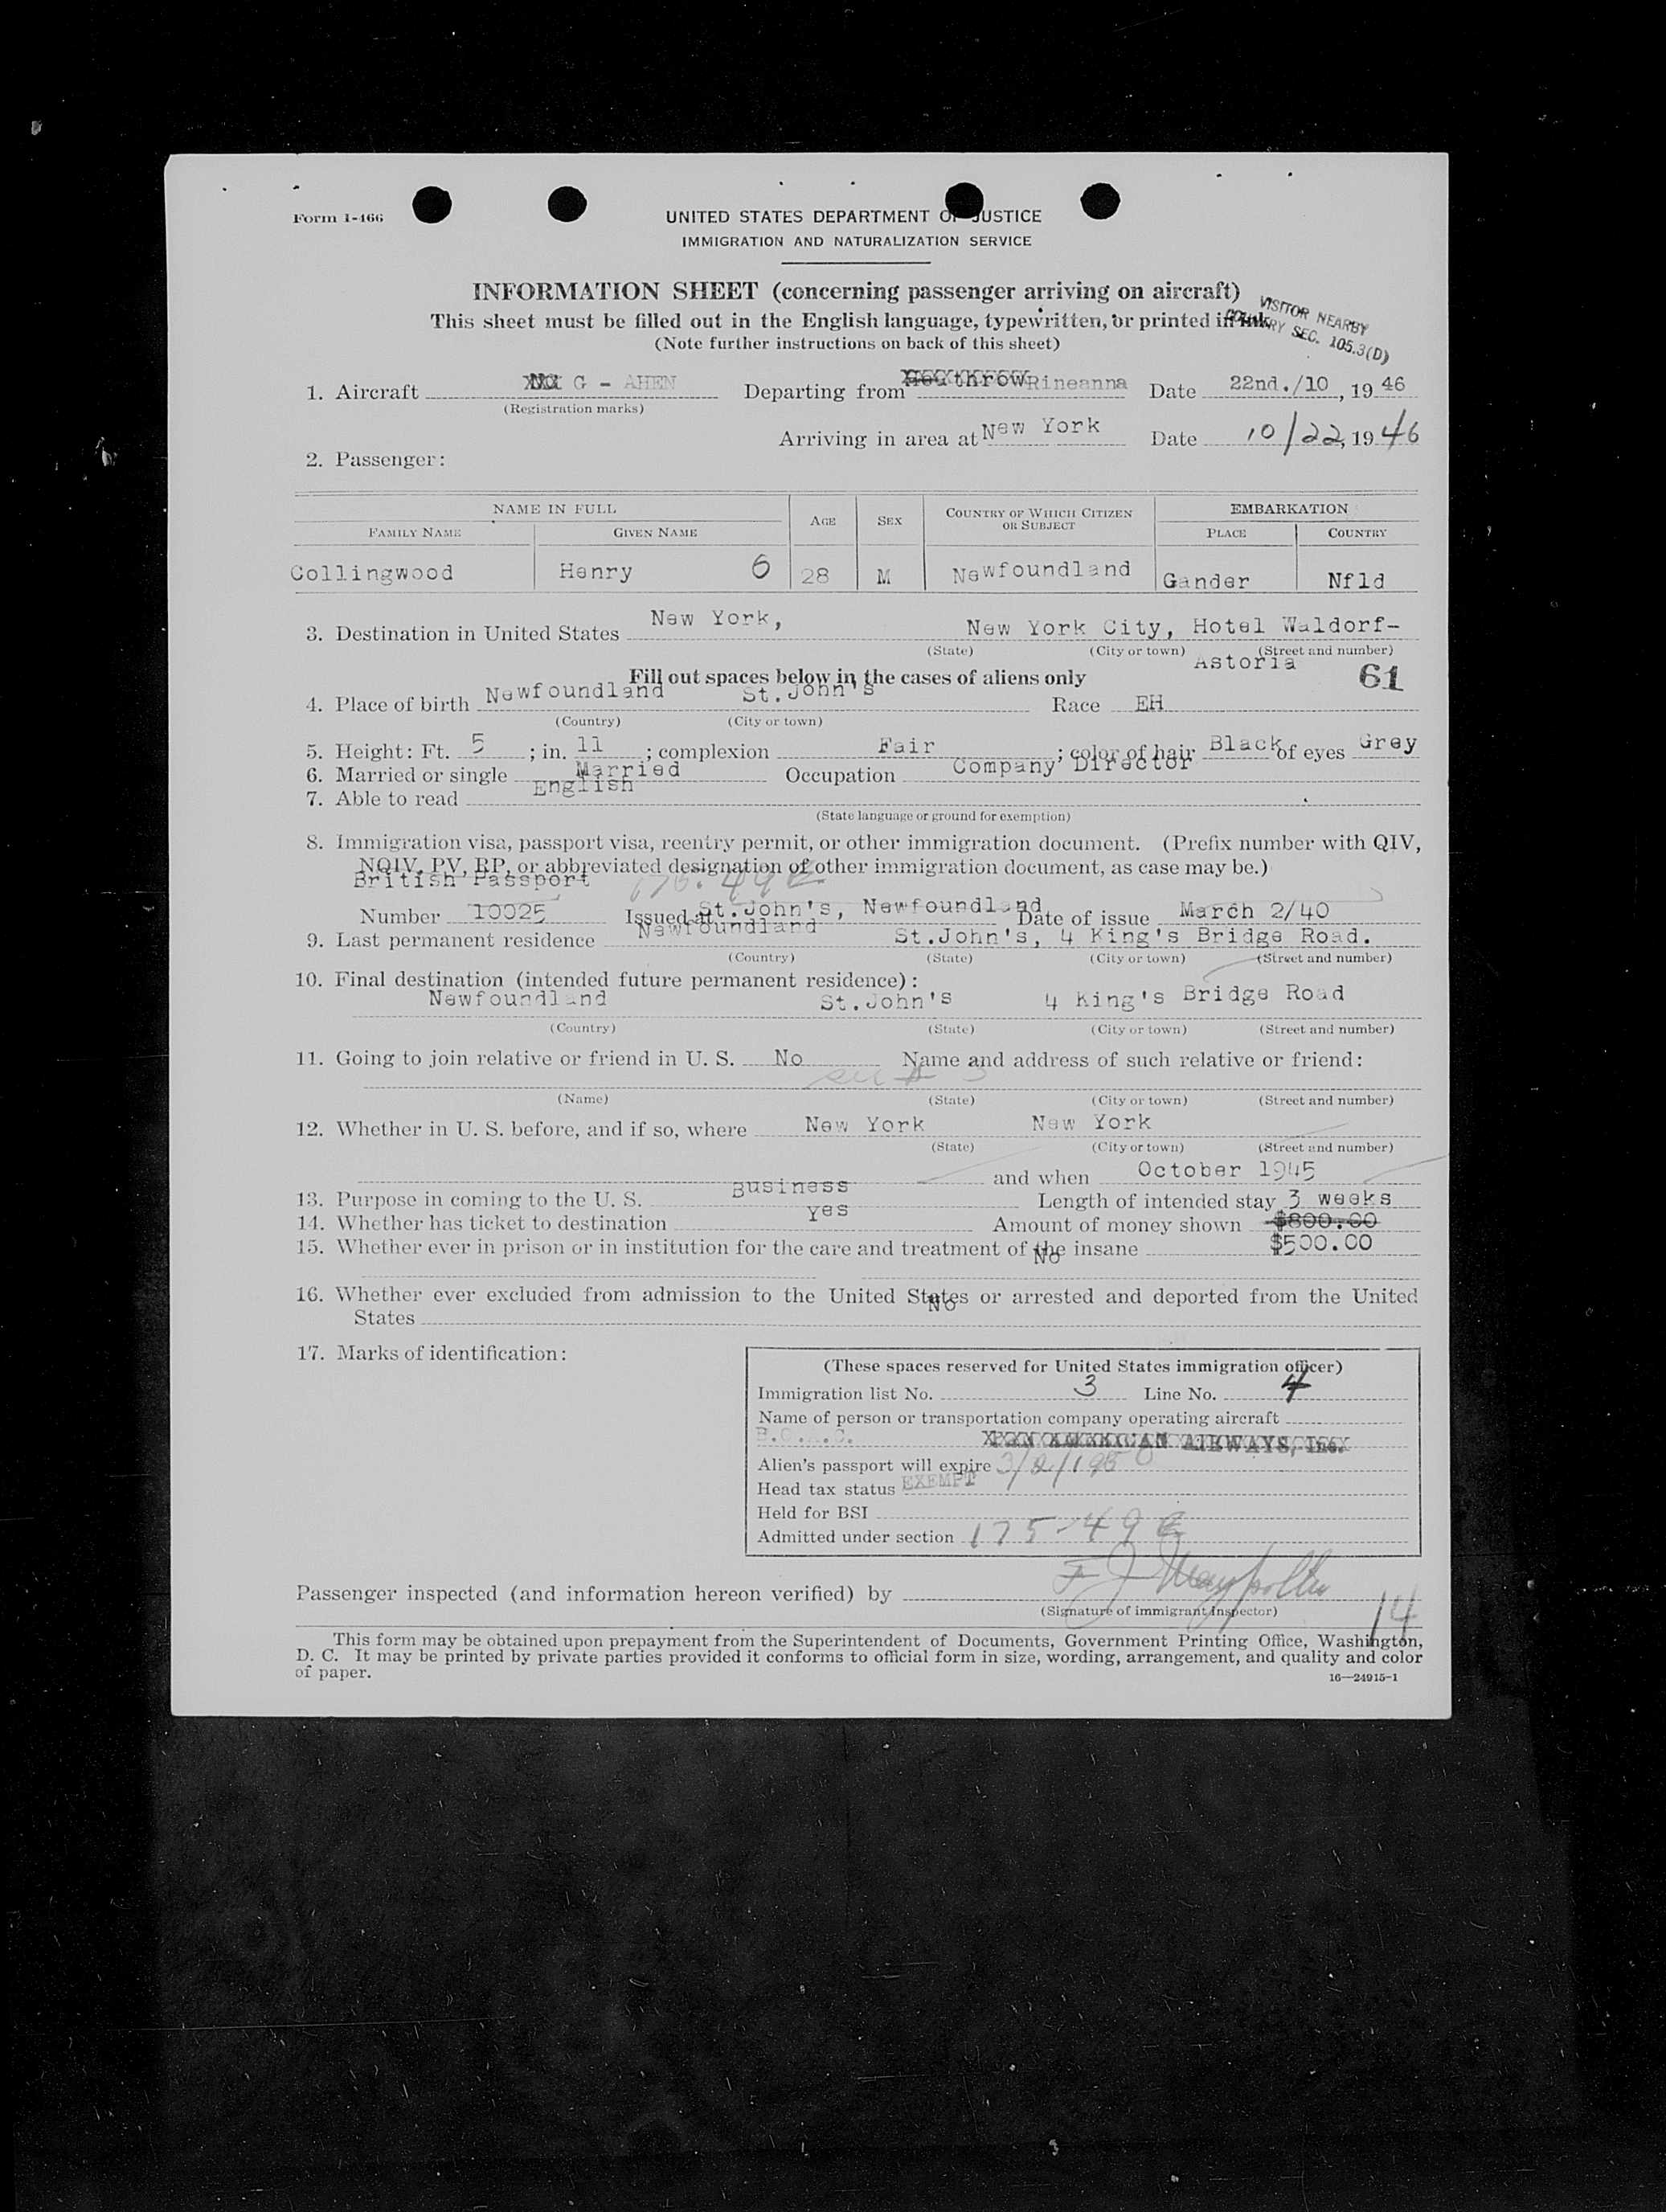 Form I-466
UNITED STATES DEPARTMENT OF JUSTICE
IMMIGRATION AND NATURALIZATION SERVICE
INFORMATION SHEET (concerning passenger arriving on aircraft)
This sheet must be filled out in the English language, typewritten, or printed in ink.
VISITOR NEARBY
COUNTRY SEC. 105.3(D)
(Note further instructions on back of this sheet)
1. Aircraft G - AHEN Departing from Rineanna Date 22nd./10, 19 46
(Registration marks)
Arriving in area at New York Date 10/22, 19 46
2. Passenger:
NAME IN FULL AGE SEX COUNTRY OF WHICH CITIZEN OR SUBJECT EMBARKATION
FAMILY NAME GIVEN NAME PLACE COUNTRY
Collingwood Henry 6 28 M Newfoundland Gander Nfld
3. Destination in United States New York, New York City, Hotel Waldorf-
(State) (City or town) (Street and number)
Astoria
Fill out spaces below in the cases of aliens only 61
4. Place of birth Newfoundland St.John's Race EH
(Country) (City or town)
5. Height: Ft. 5; in. 11; complexion Fair; color of hair Black of eyes Grey
6. Married or single Married Occupation Company Director
7. Able to read English
(State language or ground for exemption)
8. Immigration visa, passport visa, reentry permit, or other immigration document. (Prefix number with QIV,
NQIV, PV, RP, or abbreviated designation of other immigration document, as case may be.)
British Passport 175.49
Number 10025 Issued at St.John's, Newfoundland Date of issue March 2/40
9. Last permanent residence Newfoundland St.John's, 4 King's Bridge Road.
(Country) (State) (City or town) (Street and number)
10. Final destination (intended future permanent residence):
Newfoundland St.John's 4 King's Bridge Road
(Country) (State) (City or town) (Street and number)
11. Going to join relative or friend in U. S. No Name and address of such relative or friend:
see # 3
(Name) (State) (City or town) (Street and number)
12. Whether in U. S. before, and if so, where New York New York
(State) (City or town) (Street and number)
and when October 1945
13. Purpose in coming to the U. S. Business Length of intended stay 3 weeks
14. Whether has ticket to destination Yes Amount of money shown $800.00
15. Whether ever in prison or in institution for the care and treatment of the insane No $500.00
16. Whether ever excluded from admission to the United States or arrested and deported from the United
States No
17. Marks of identification:
(These spaces reserved for United States immigration officer)
Immigration list No. 3 Line No. 4
Name of person or transportation company operating aircraft
B.O.A.C. AMERICAN AIRWAYS, Inc.
Alien's passport will expire 3/2/1950
Head tax status EXEMPT
Held for BSI
Admitted under section 175-49
Passenger inspected (and information hereon verified) by
(Signature of immigrant Inspector)
14
This form may be obtained upon prepayment from the Superintendent of Documents, Government Printing Office, Washington,
D. C. It may be printed by private parties provided it conforms to official form in size, wording, arrangement, and quality and color
of paper.
16—24915-1